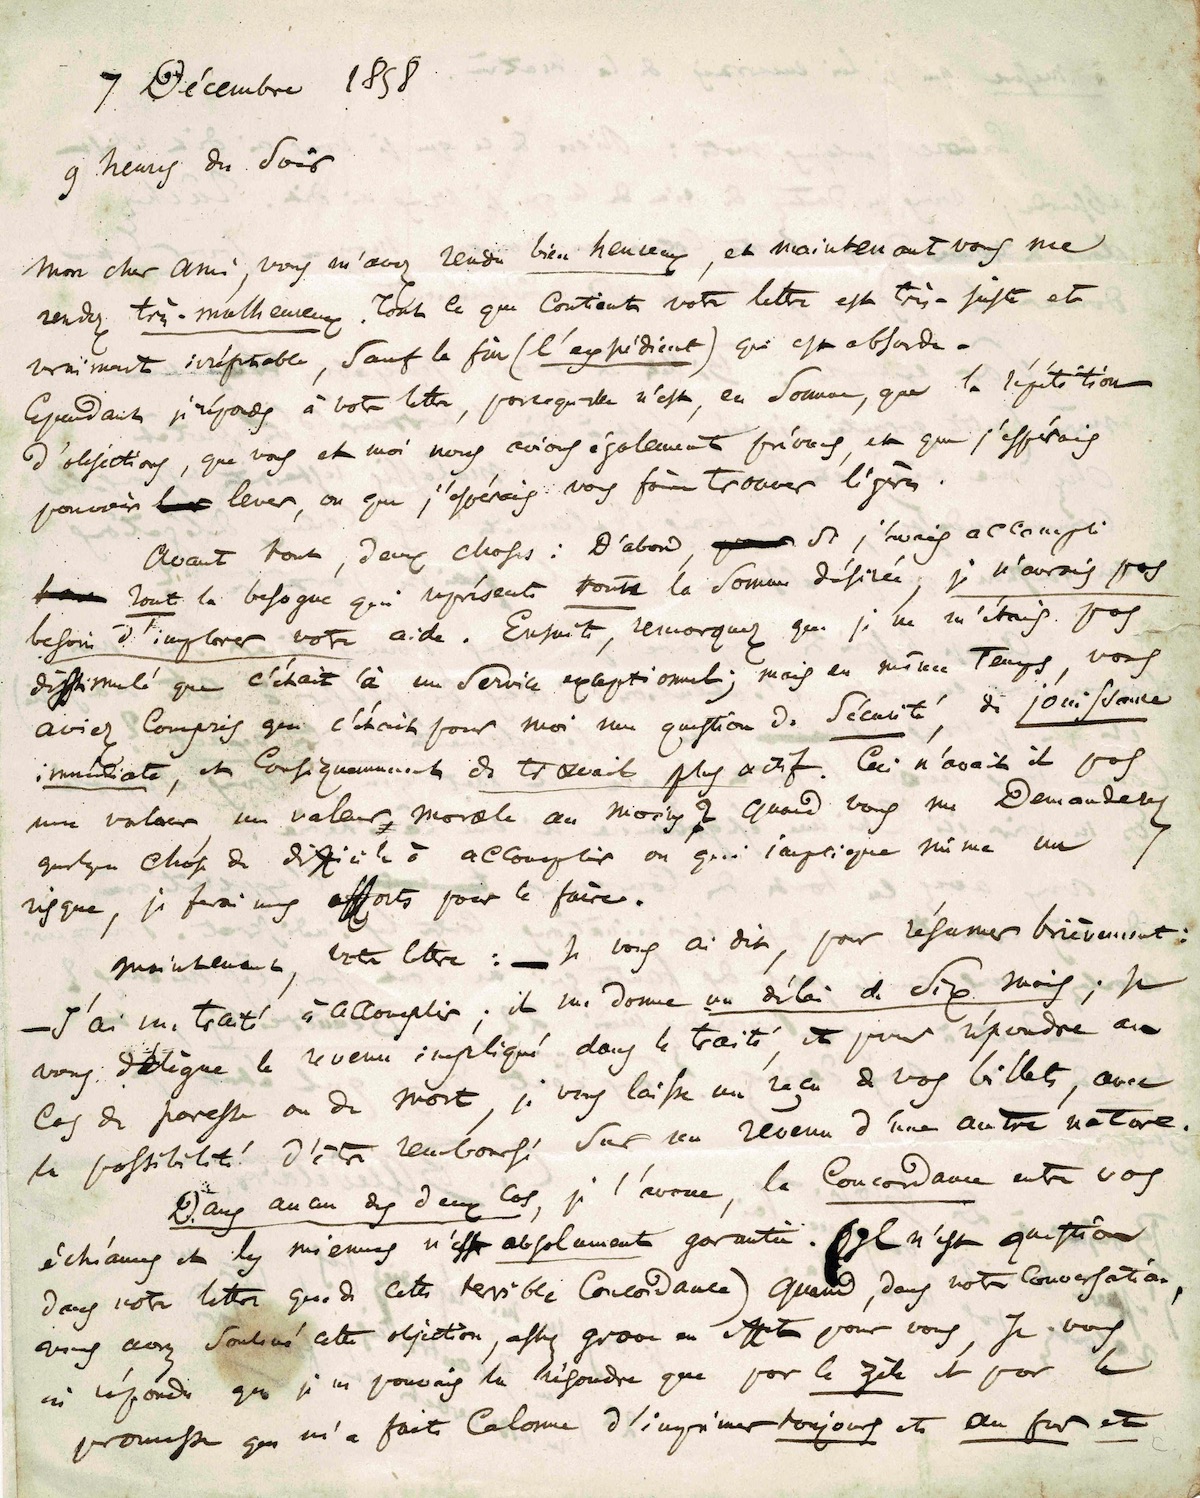 7 Décembre 1858
9 heures du Soir
Mon cher ami, vous m'avez rendu bien heureux, et maintenant vous me
rendez très-malheureux. Tout ce que contient votre lettre est très-juste et
vraiment irréfutable, Sauf la fin (l'expédient) qui est absurde.
Cependant je réponds à votre lettre, parcequ'elle n'est, en Somme, que la répétition
d'objections, que vous et moi nous avions également prévues, et que j'espérais
pouvoir lever, ou que j'espérais vous faire trouver légères.
Avant tout, deux choses : D'abord, Si j'avais accompli
tout la besogne qui représente toute la Somme désirée, je n'aurais pas
besoin d'implorer votre aide. Ensuite, remarquez que je ne m'étais pas
dissimulé que c'était là un Service exceptionnel ; mais en même Temps, vous
aviez compris que c'était pour moi une question de Sécurité, de jouissance
immédiate, et Conséquemment de travail plus actif. Ceci n'avait il pas
une valeur, une valeur morale au moins ? Quand vous me Demanderez
quelque chose de difficile à accomplir ou qui implique même un
risque, je ferai mes efforts pour le faire.
Maintenant, votre lettre : — Je vous ai dit, pour résumer brièvement :
— J'ai un traité à accomplir ; il me donne un délai de Six mois ; Je
vous délègue le revenu impliqué dans le traité, et pour répondre au
Cas de paresse ou de mort, je vous laisse un reçu de vos billets, avec
la possibilité d'être remboursé Sur un revenu d'une autre nature.
Dans aucun des deux Cas, je l'avoue, la Concordance entre vos
échéances et les miennes n'est absolument garantie. (Il n'est question
dans votre lettre que de cette terrible Concordance) Quand, dans notre Conversation,
vous avez Soulevé cette objection, assez grave en effet pour vous, Je vous
ai répondu que je ne pouvais la résoudre que par le zèle et par la
promesse que m'a faite Calonne d'imprimer toujours et au fur et